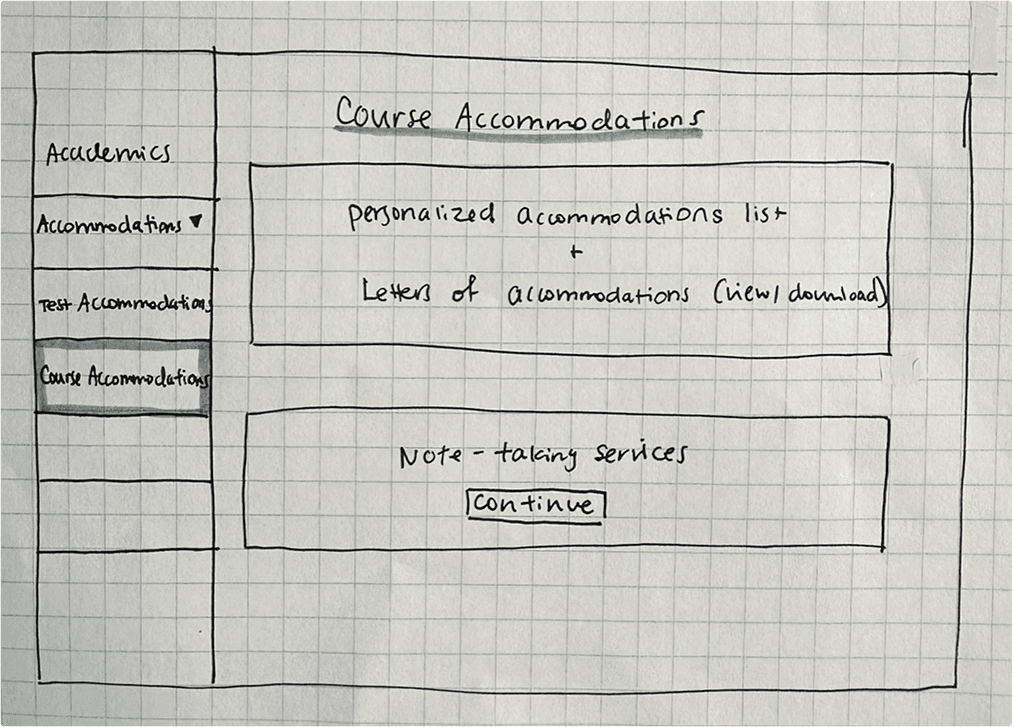 Academics
Accommodations ▼
Test Accommodations
Course Accommodations
Course Accommodations
personalized accommodations list
+
Letters of accommodations (view/download)
Note-taking services
continue